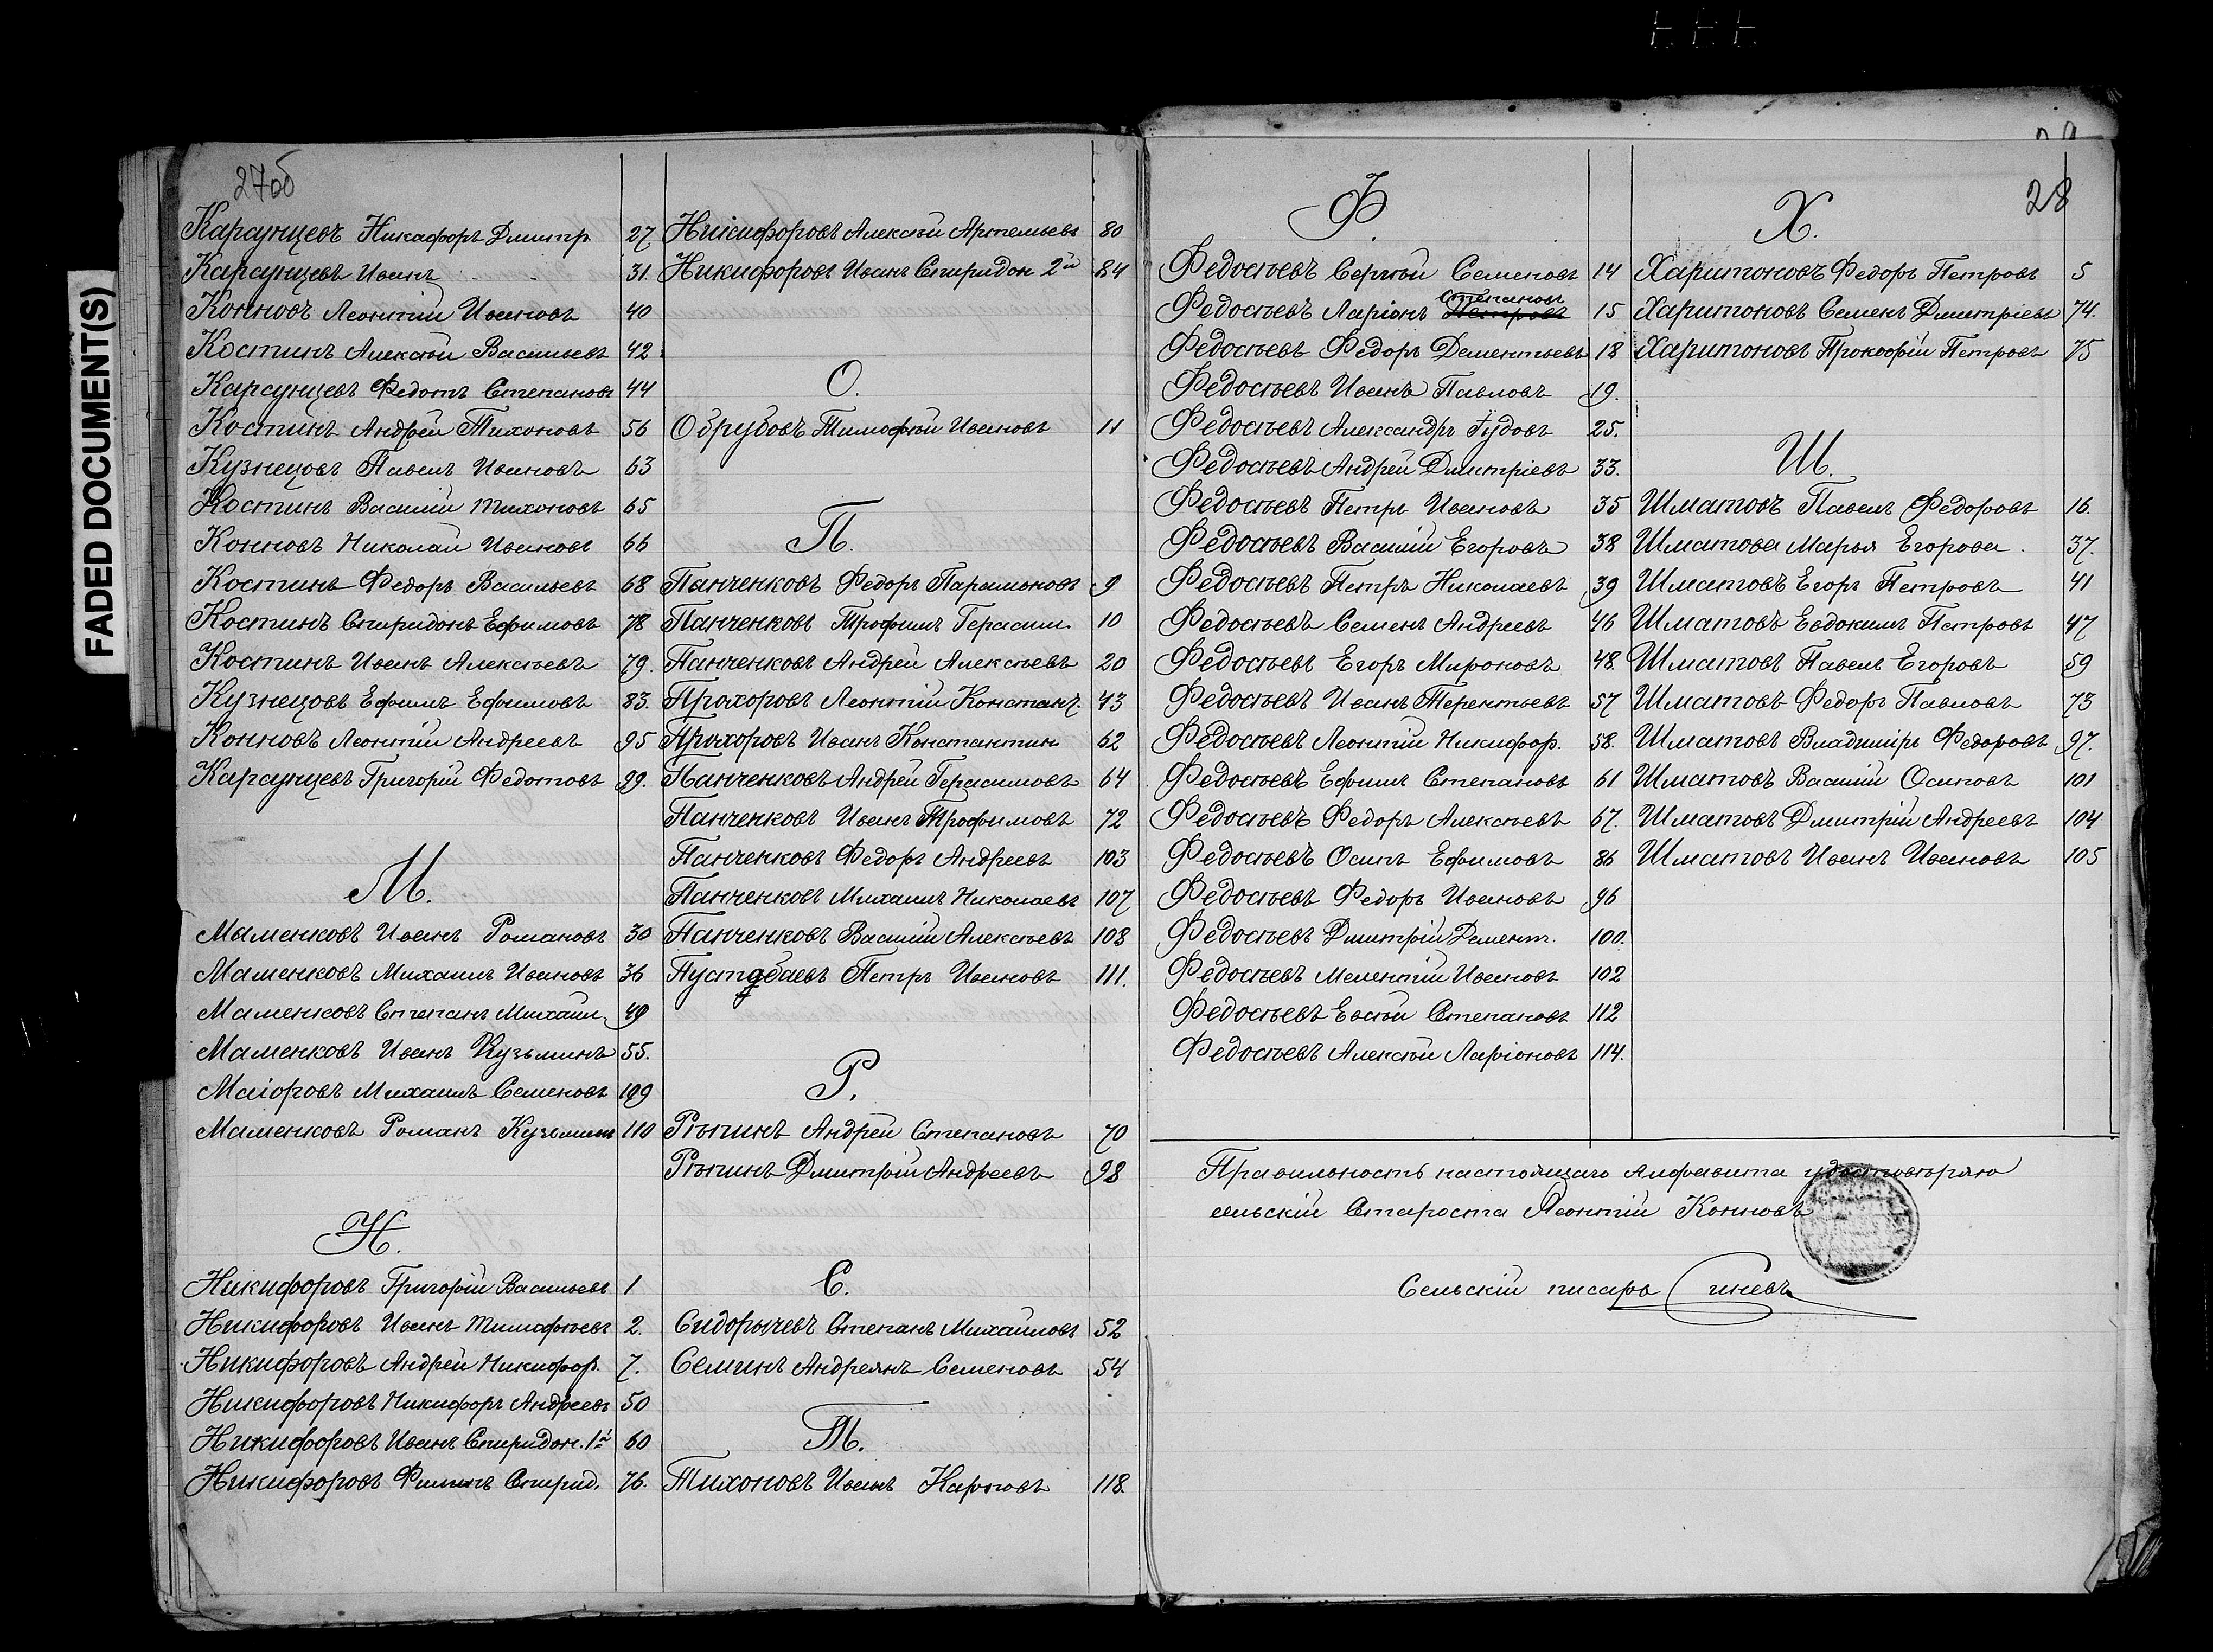 FADED DOCUMENT(S)
27об
Карсунцевъ Никафоръ Дмитр. 27
Карсунцевъ Иванъ 31.
Конновъ Леонтій Ивановъ 40
Костинъ Алексѣй Васильевъ 42
Карсунцевъ Федотъ Степановъ 44
Костинъ Андрей Тихоновъ 56
Кузнецовъ Павелъ Ивановъ 63
Костинъ Василій Тихоновъ 65
Конновъ Николай Ивановъ 66
Костинъ Федоръ Васильевъ 68
Костинъ Спиридонъ Ефимовъ 78
Костинъ Иванъ Алексѣевъ 79.
Кузнецовъ Ефимъ Ефимовъ 83.
Конновъ Леонтій Андреевъ 95
Карсунцевъ Григорій Федотовъ 99.
М.
Маменковъ Иванъ Романовъ 30
Маменковъ Михаилъ Ивановъ 36
Маменковъ Степанъ Михаил. 49
Маменковъ Иванъ Кузьминъ 55.
Маіоровъ Михаилъ Семеновъ 109
Маменковъ Романъ Кузьминъ 110
Н.
Никифоровъ Григорій Васильевъ 1
Никифоровъ Иванъ Тимофѣевъ 2.
Никифоровъ Андрей Никифор. 7.
Никифоровъ Никифоръ Андреевъ 50
Никифоровъ Иванъ Спиридон. 1й 60
Никифоровъ Филипъ Спирид. 76.
Никифоровъ Алексѣй Артемьевъ 80
Никифоровъ Иванъ Спиридон 2й 84
О.
Обрубовъ Тимофѣй Ивановъ 11
П.
Панченковъ Федоръ Парамоновъ 9
Панченковъ Трофимъ Герасим. 10
Панченковъ Андрей Алексѣевъ 20
Прохоровъ Леонтій Констант. 43
Прохоровъ Иванъ Константин. 62
Панченковъ Андрей Герасимовъ 64
Панченковъ Иванъ Трофимовъ 72
Панченковъ Федоръ Андреевъ 103
Панченковъ Михаилъ Николаевъ 107
Панченковъ Василій Алексѣевъ 108
Пустобаевъ Петръ Ивановъ 111.
Р.
Рѣпинъ Андрей Степановъ 70
Рѣпинъ Дмитрій Андреевъ 98
С.
Сидорычевъ Степанъ Михайловъ 52
Семинъ Андреянъ Семеновъ 54
Т.
Тихоновъ Иванъ Карповъ 118.
28
Ф.
Федосѣевъ Сергѣй Семеновъ 14
Федосѣевъ Ларіонъ Петровъ Степановъ 15
Федосѣевъ Федоръ Дементьевъ 18
Федосѣевъ Иванъ Павловъ 19.
Федосѣевъ Александръ Гудовъ 25.
Федосѣевъ Андрей Дмитріевъ 33.
Федосѣевъ Петръ Ивановъ 35
Федосѣевъ Василій Егоровъ 38
Федосѣевъ Петръ Николаевъ 39
Федосѣевъ Семенъ Андреевъ 46
Федосѣевъ Егоръ Мироновъ 48.
Федосѣевъ Иванъ Терентьевъ 57
Федосѣевъ Леонтій Никифор. 58.
Федосѣевъ Ефимъ Степановъ 61
Федосѣевъ Федоръ Алексѣевъ 67.
Федосѣевъ Осипъ Ефимовъ 86
Федосѣевъ Федоръ Ивановъ 96
Федосѣевъ Дмитрій Демент. 100.
Федосѣевъ Мелентій Ивановъ 102
Федосѣевъ Евсѣй Степановъ 112
Федосѣевъ Алексѣй Ларіоновъ 114.
Х.
Харитоновъ Федоръ Петровъ 5
Харитоновъ Семенъ Дмитріевъ 74.
Харитоновъ Прокофій Петровъ 75
Ш.
Шматовъ Павелъ Федоровъ 16.
Шматова Марья Егорова. 37.
Шматовъ Егоръ Петровъ 41
Шматовъ Евдокимъ Петровъ 47
Шматовъ Павелъ Егоровъ 59
Шматовъ Федоръ Павловъ 73
Шматовъ Владиміръ Федоровъ 97.
Шматовъ Василій Осиповъ 101
Шматовъ Дмитрій Андреевъ 104
Шматовъ Иванъ Ивановъ 105
Правильность настоящаго алфавита удостовѣряю
сельскій Староста Леонтій Конновъ
Сельскій писарь